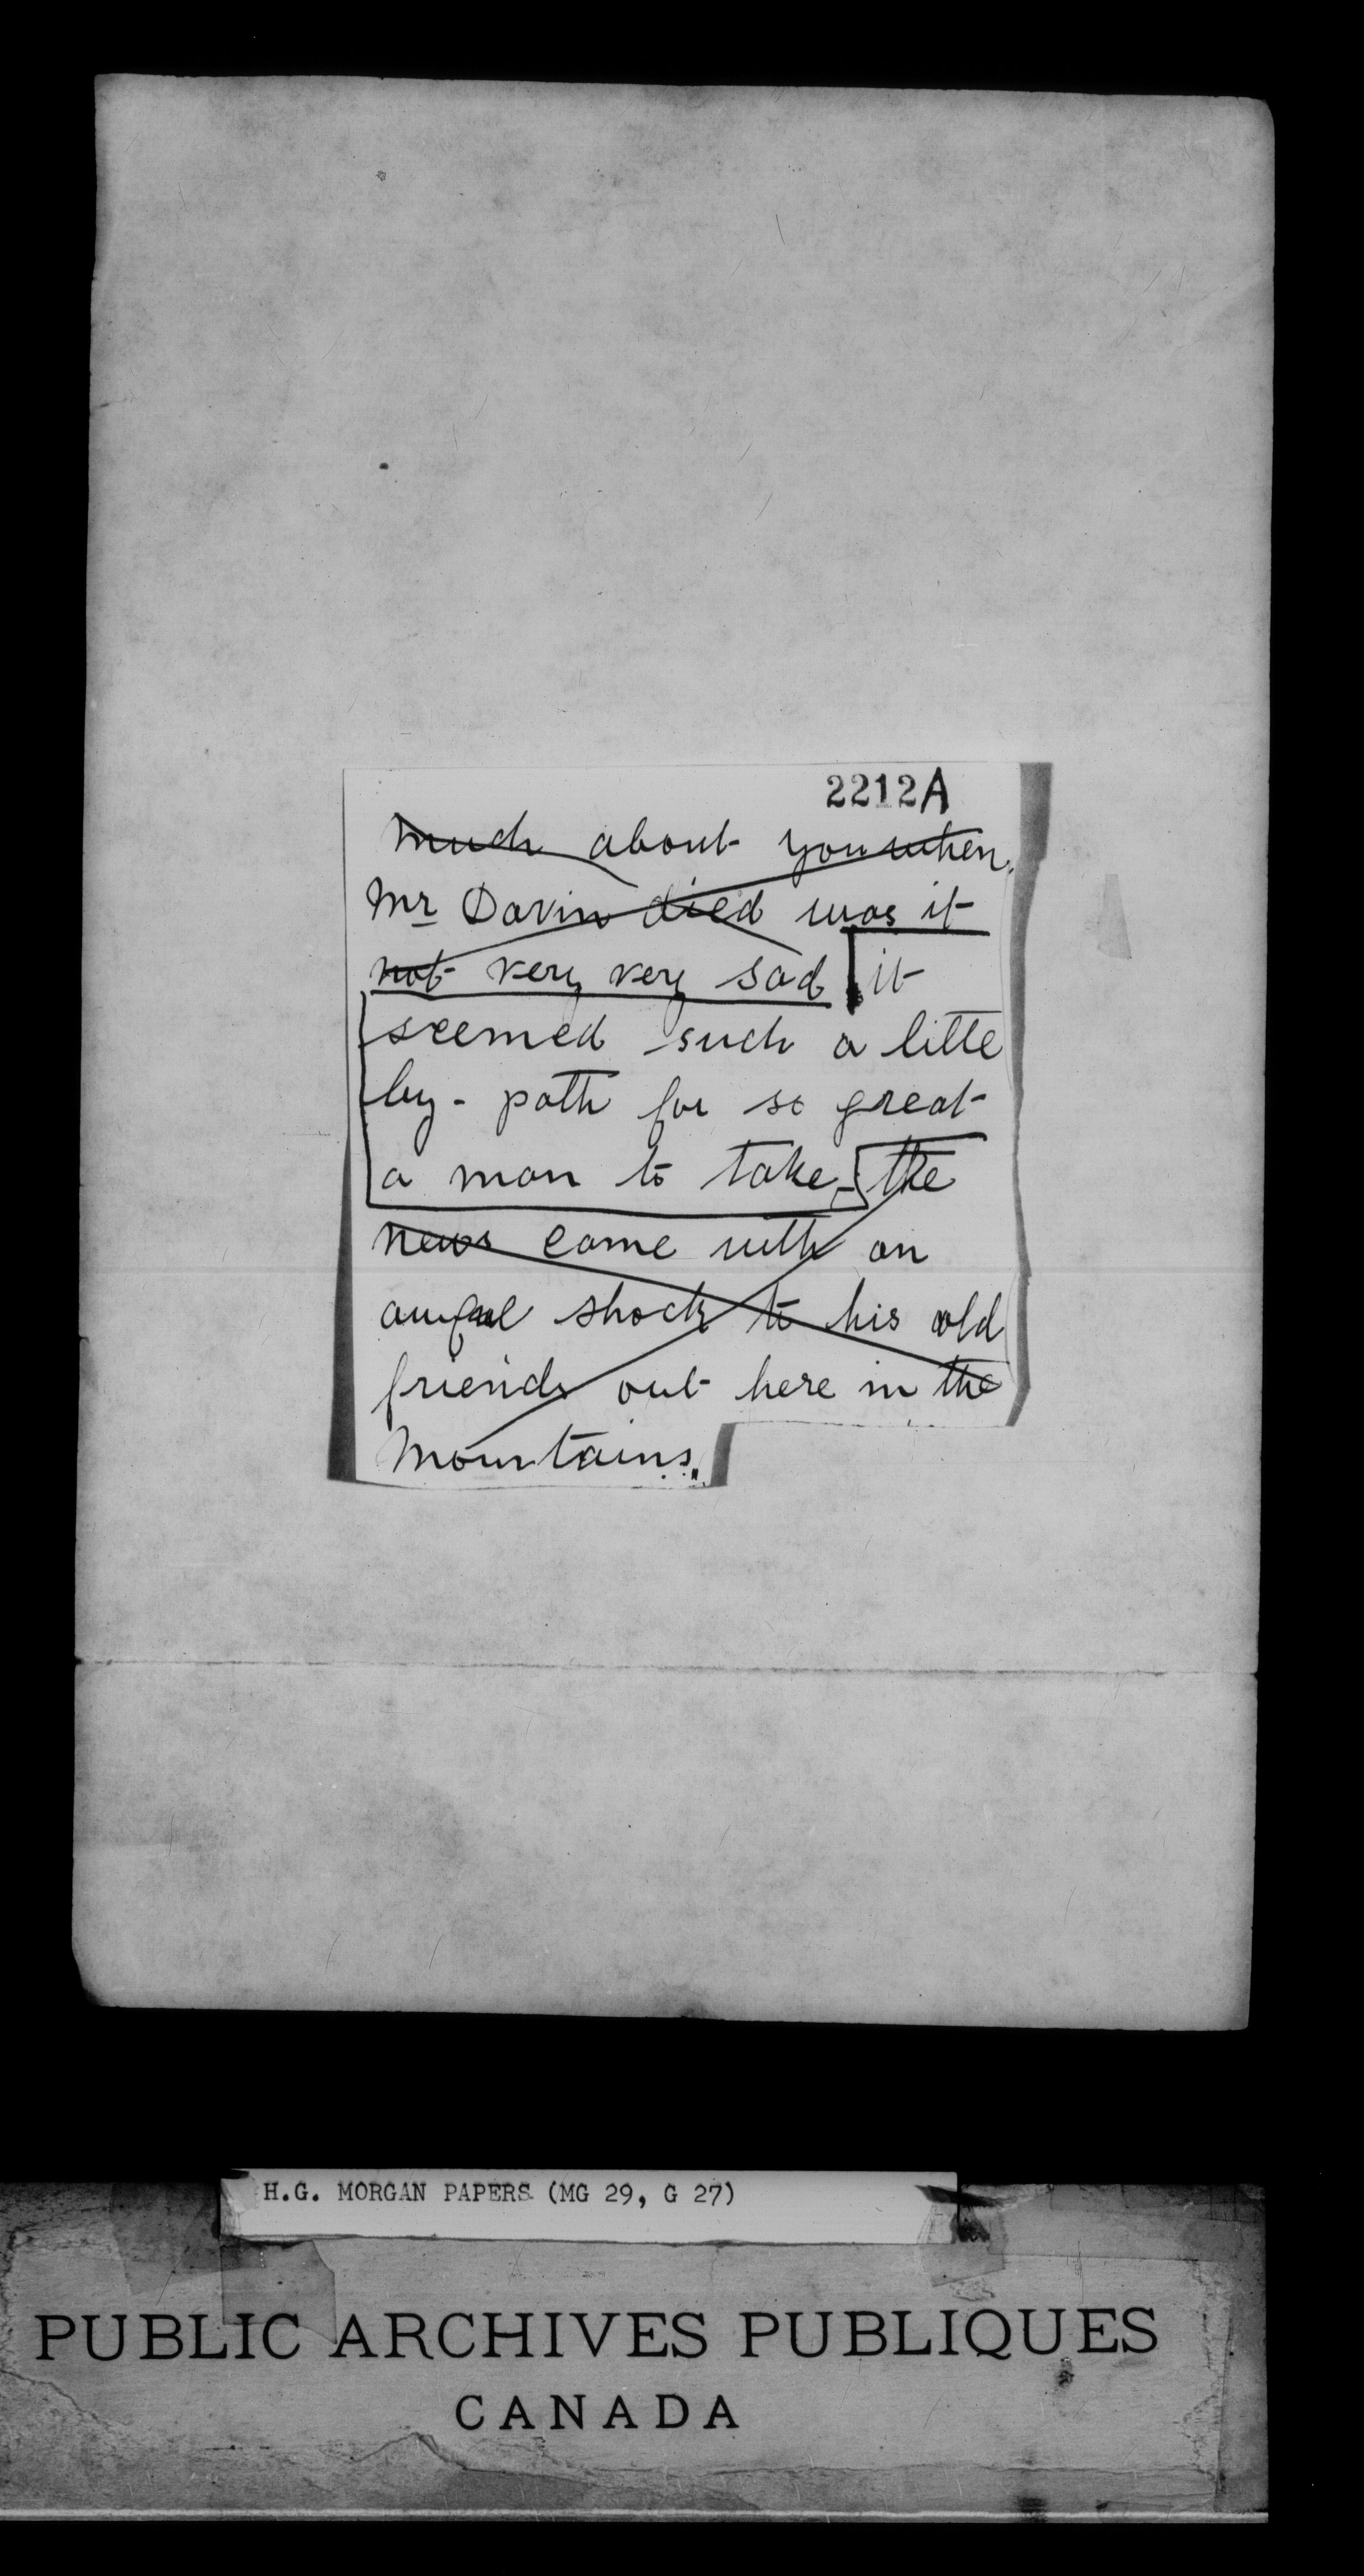 2212A
much about you when
Mr Davin died was it
not very very sad it
seemed such a litte
by-path for so great
a man to take - the
news came with an
awful shock to his old
friends out here in the
Mountains.
H.G. MORGAN PAPERS (MG 29, G 27)
PUBLIC ARCHIVES PUBLIQUES
CANADA